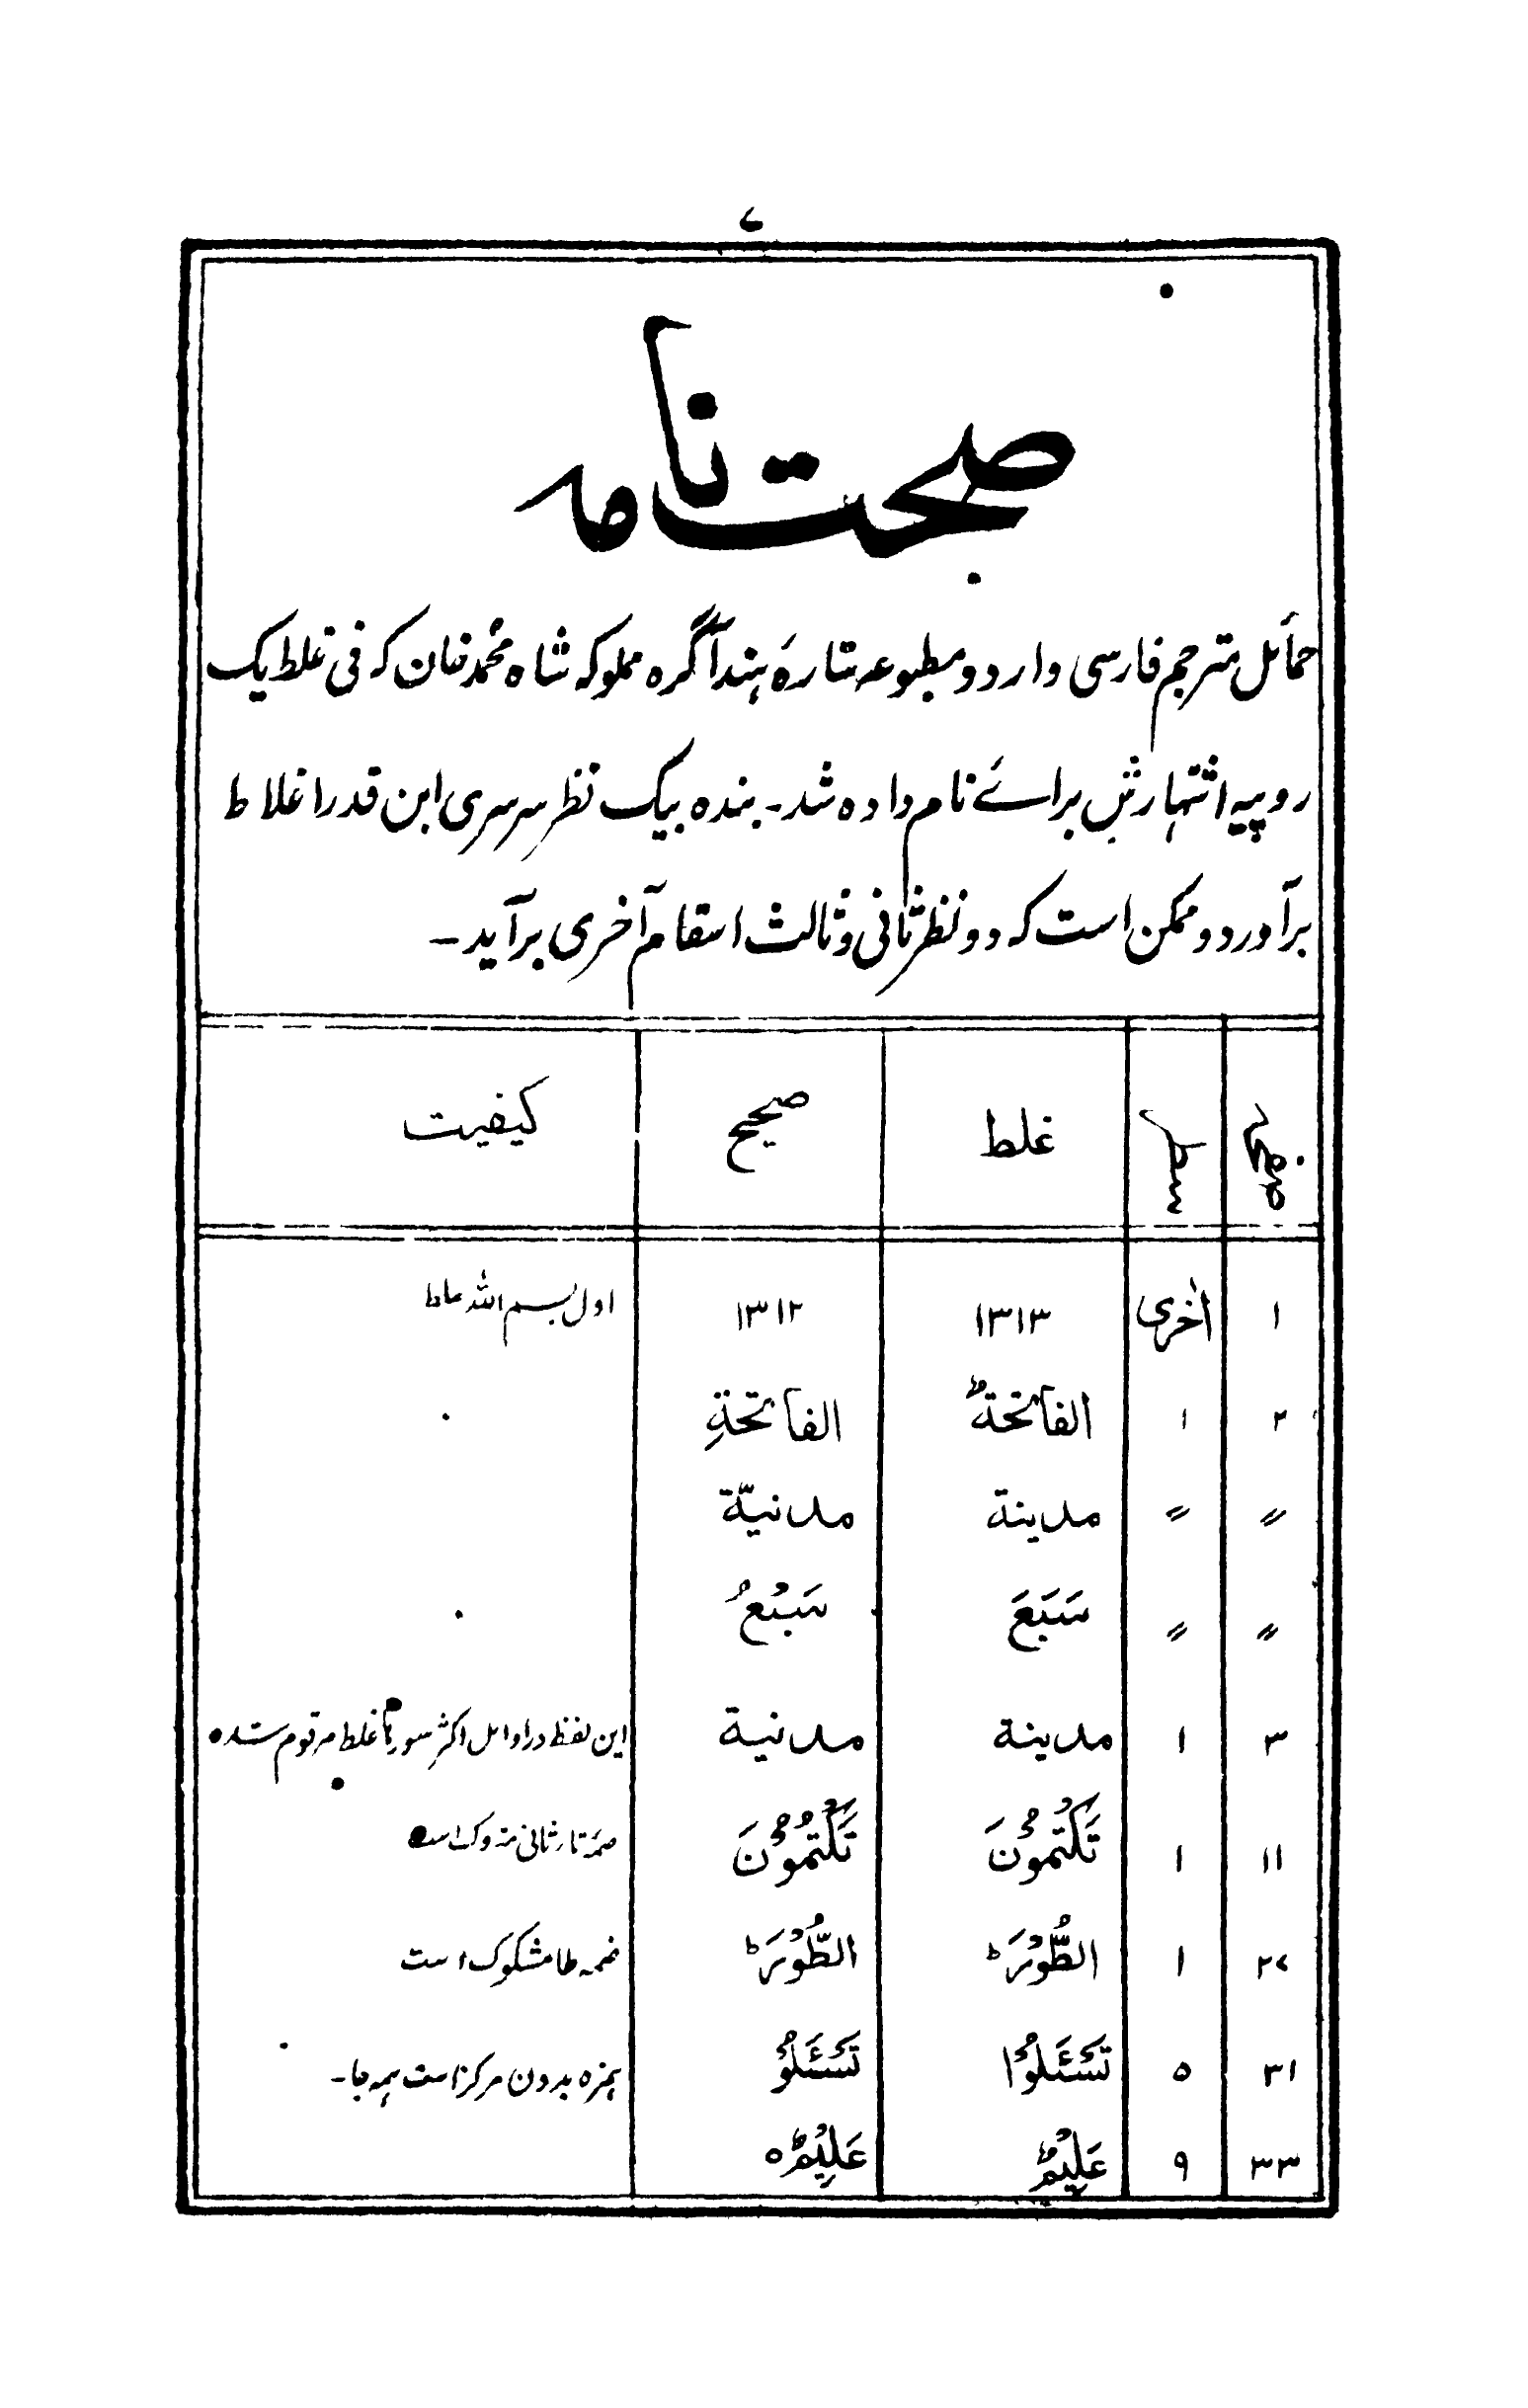 صحت نامہ
حمائل مترجم فارسی واردو مطبوعہ ستارۂ ہند آگرہ مملوکہ شاہ محمد خان کہ فی غلط یک
روپیہ اشتہارش برائے نام دادہ شد۔ بندہ بیک نظر سرسری این قدر اغلاط
برآورد و ممکن است کہ دو نظر ثانی و ثالث اسقام آخری برآید۔
صفحہ سطر غلط صحیح کیفیت
۱ اخری ۱۳۱۳ ۱۳۱۲ اول بسم اللہ
۲ ۱ الفاتحۃؕ الفاتحۃِ
〃 〃 مدینة مدنیّة
〃 〃 سَبَعَ سَبْعُ
۳ ۱ مدینة مدنیة این لفظ در اوایل اکثر سورہا غلط مرقوم شدہ
۱۱ ۱ تَكْتمُوْنَ تَكْتُمُوْنَ ضمہ تار ثانی متروک است
۲۷ ۱ الطُّوْرَؕ الطُّوْرَؕ ضمہ طا مشکوک است
۳۱ ۵ تَسْئَلُوْا تَسْئَلُوْ ہمزہ بدون مرکز است ہمہ جا۔
۳۳ ۹ عَلِيْمٌ عَلِيْمٌ ہ